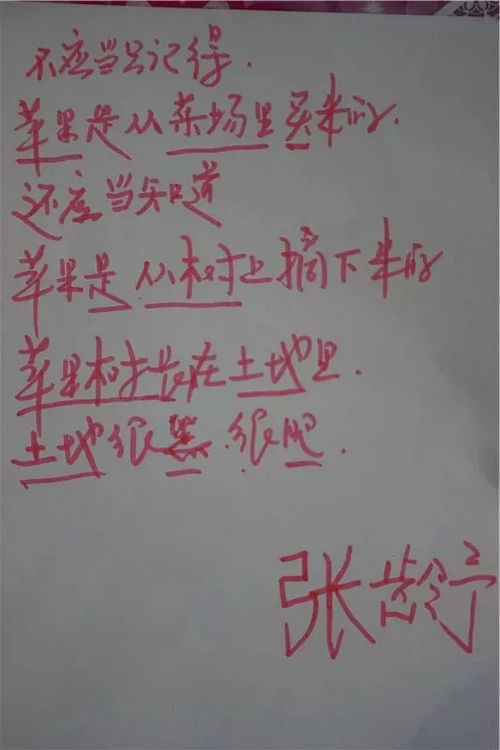 不应当只记得.
苹果是从菜场里买来的.
还应当知道
苹果是从树上摘下来的
苹果树长在土地里.
土地很黑.很肥.
张龄予